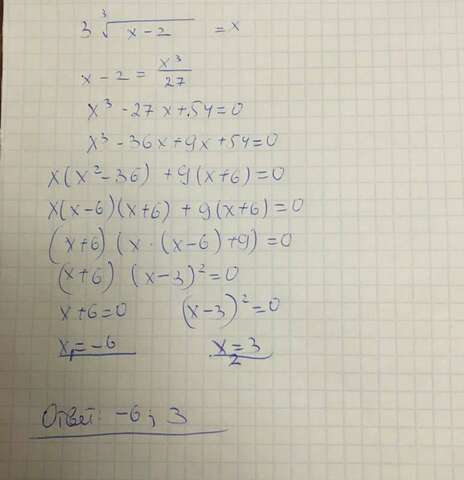 3 ∛(x-2) = x
x-2 = x³/27
x³ -27x+54=0
x³ -36x+9x+54=0
x(x²-36) +9(x+6)=0
x(x-6)(x+6) +9(x+6)=0
(x+6) (x·(x-6)+9)=0
(x+6) (x-3)²=0
x+6=0 (x-3)²=0
x₁=-6 x₂=3
Ответ: -6; 3